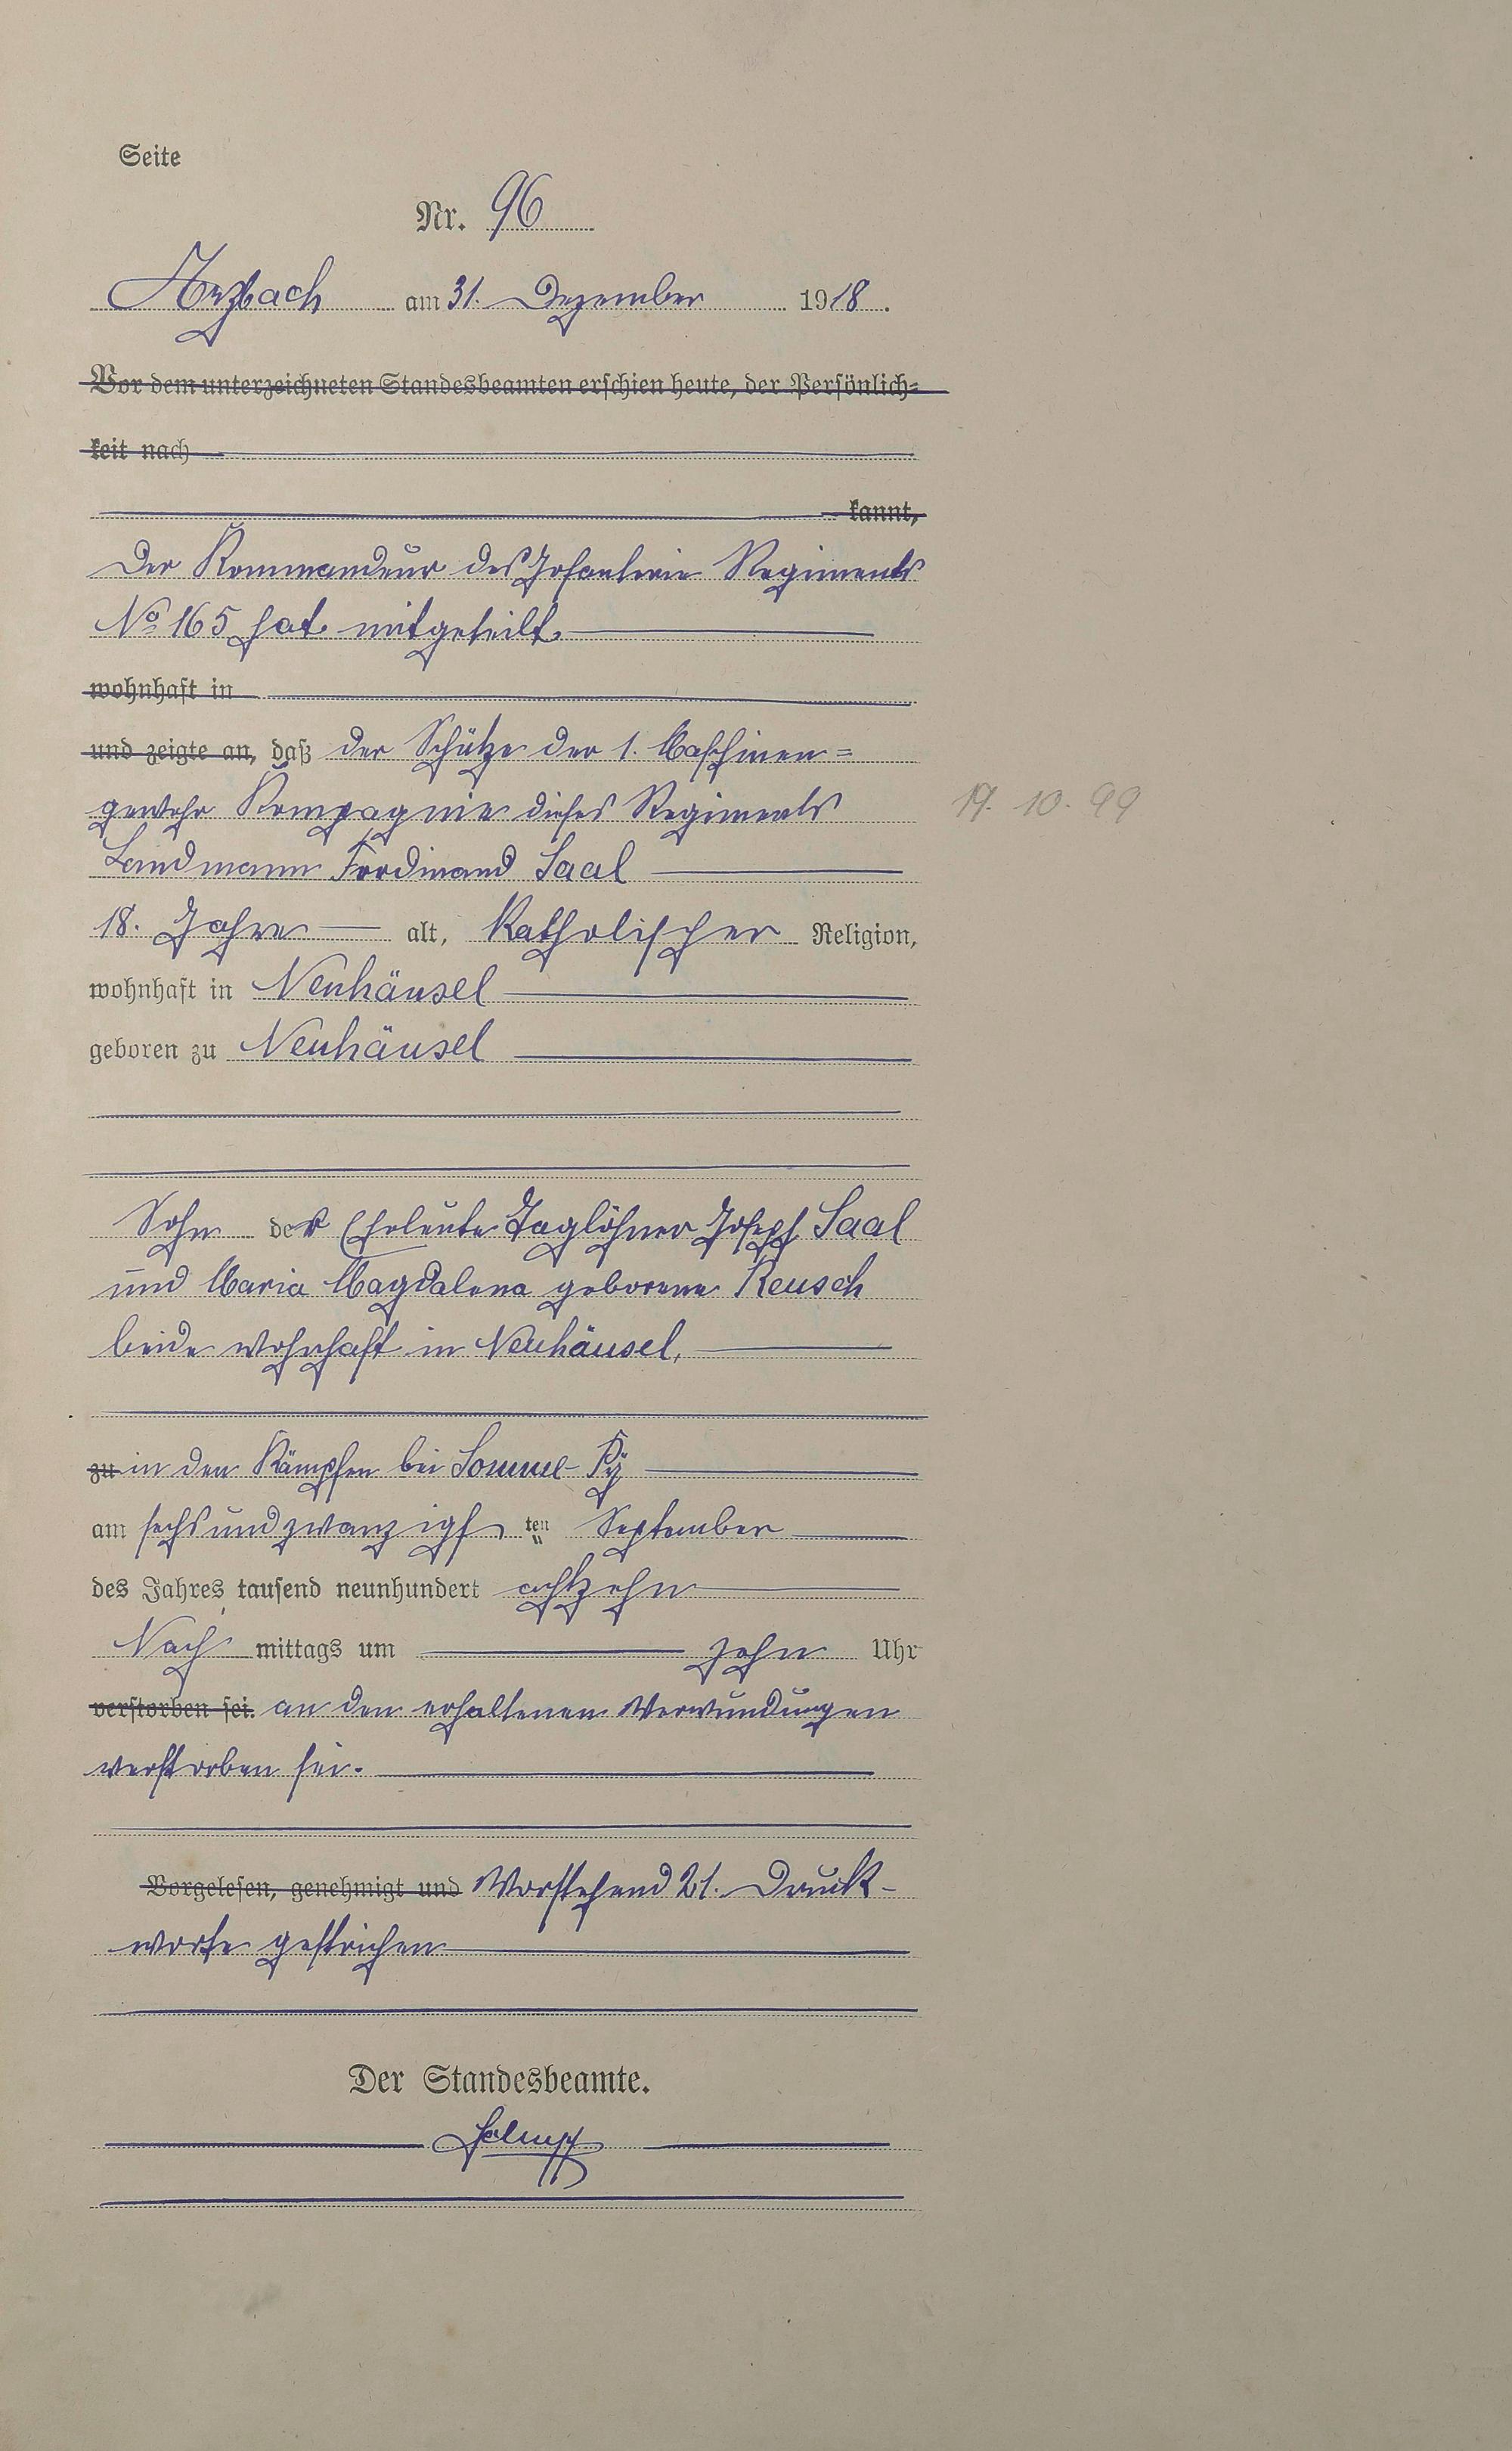 Seite
Nr. 96
Arzbach am 31. Dezember 1918.
Vor dem unterzeichneten Standesbeamten erschien heute, der Persönlich-
keit nach
kannt,
Der Kommandeur des Infanterie Regiments
No 165 hat mitgeteilt
wohnhaft in
und zeigte an, daß der Schütze der 1. Maschinen-
gewehr Kompagnie dieses Regiments
19. 10. 99
Landmann Ferdinand Saal
18. Jahre alt, Katholischer Religion,
wohnhaft in Neuhäusel
geboren zu Neuhäusel
Sohn der Eheleute Taglöhner Joseph Saal
und Maria Magdalena geborene Reusch
beide wohnhaft in Neuhäusel,
zu in den Kämpfen bei Somme-Py
am sechsundzwanzigs ten September
des Jahres tausend neunhundert achtzehn
Nach mittags um zehn Uhr
verstorben sei. an den erhaltenen Verwundungen
verstorben sei.
Vorgelesen, genehmigt und Vorstehend 21. Druck-
worte gestrichen
Der Standesbeamte.